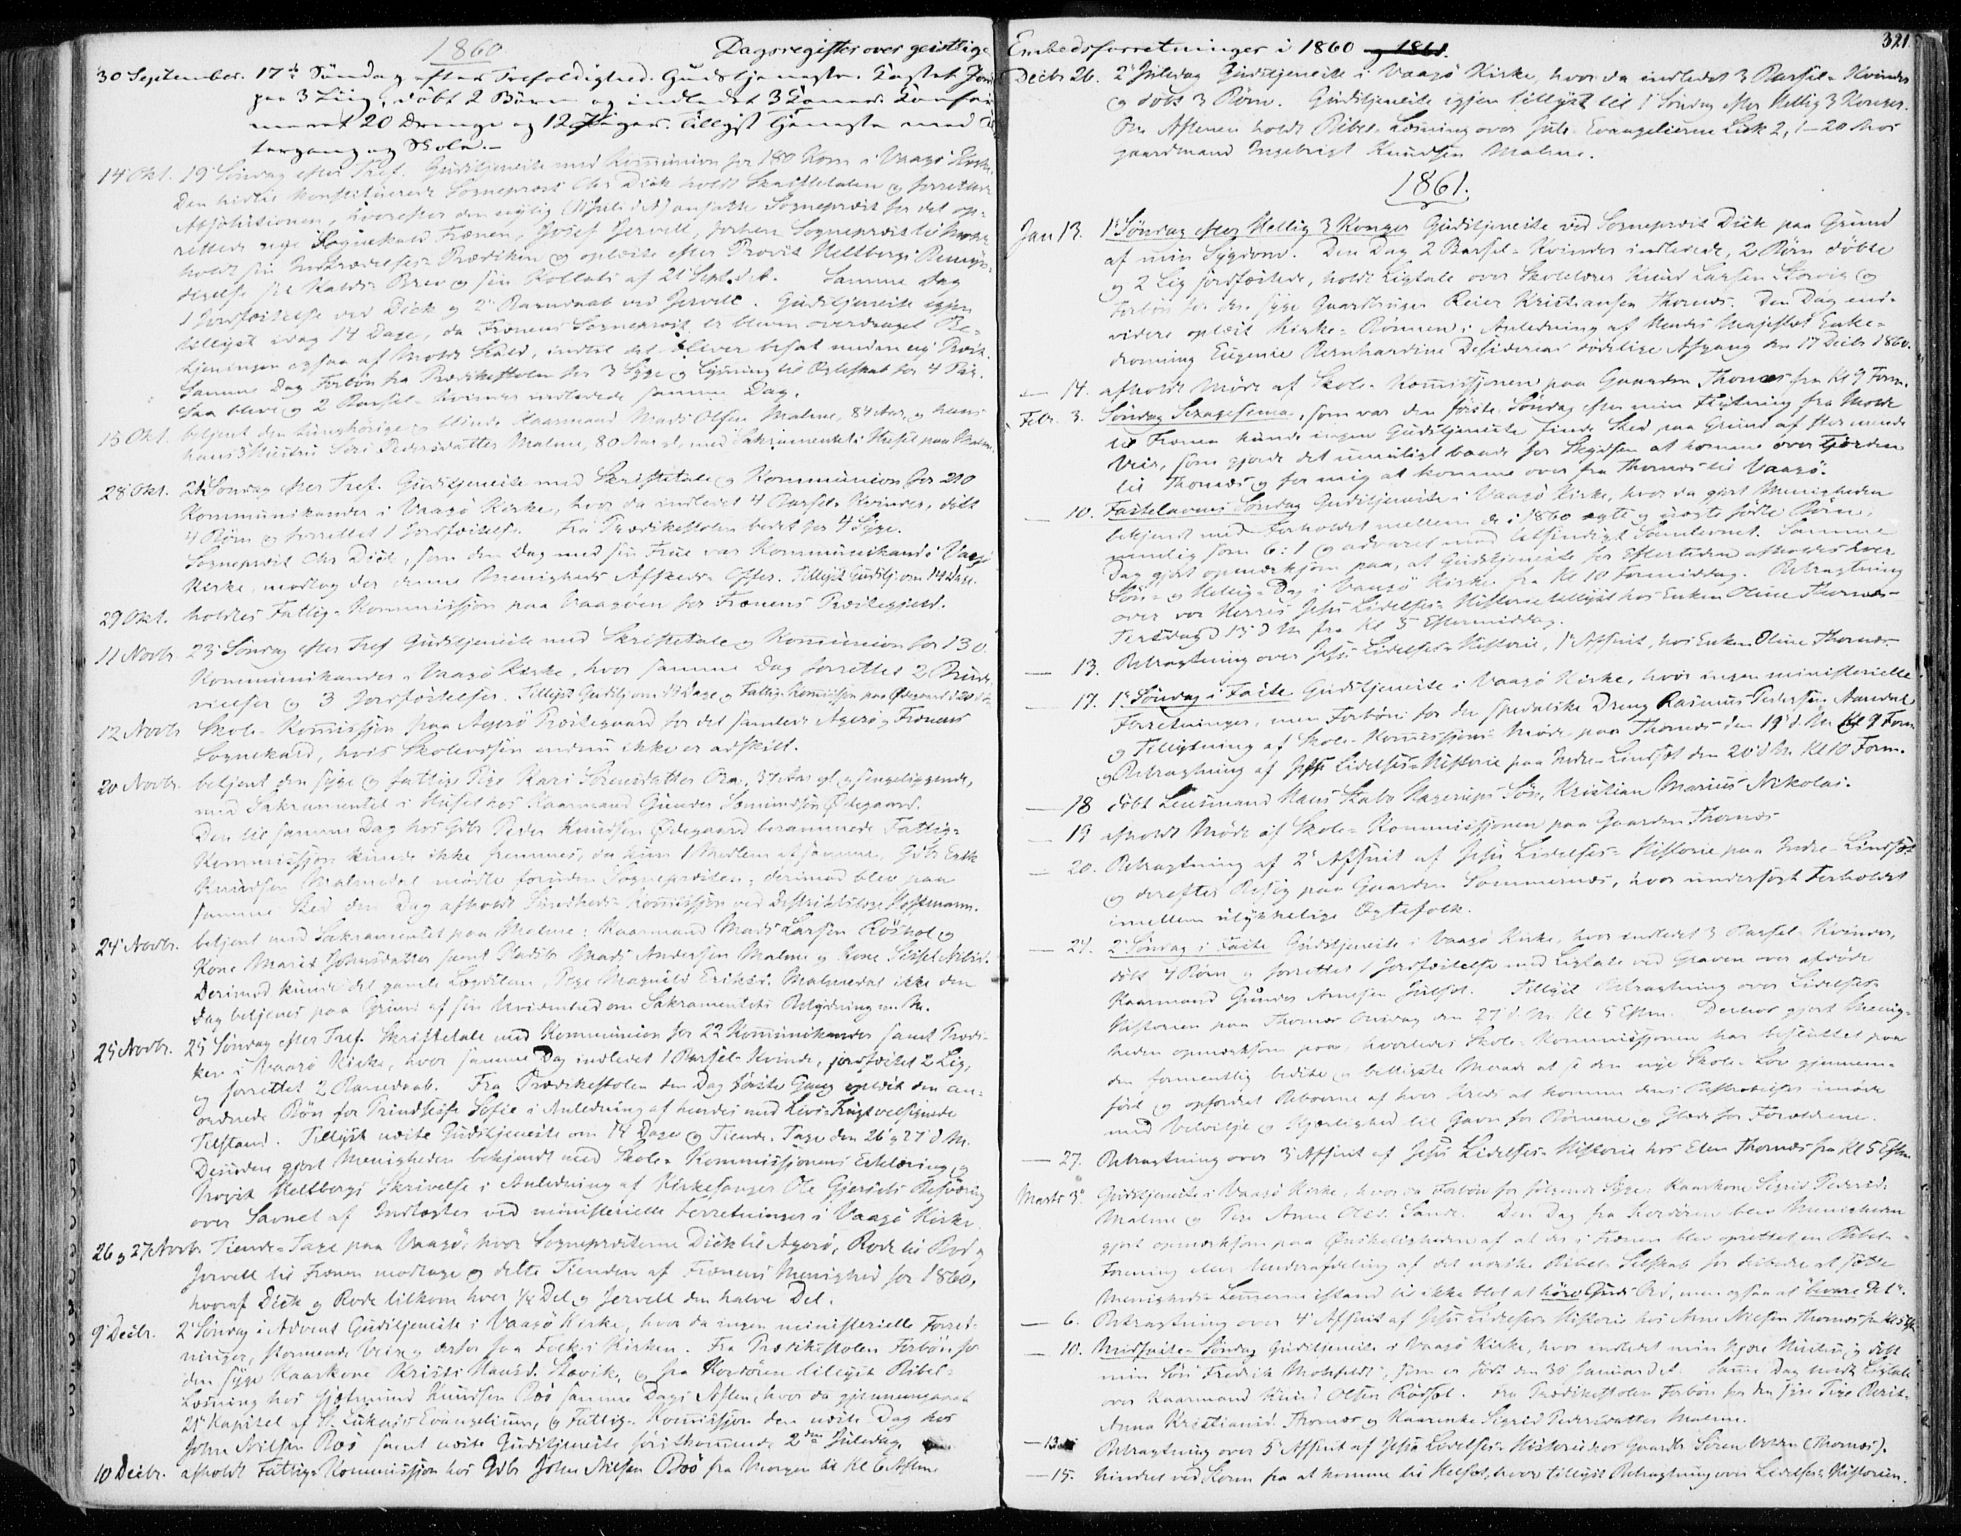 1860
Dagsregister over geistlige
30 September. 17de Søndag efter Trefoldighed. Gudstjeneste. Kastet Jord
paa 3 Liig, döbt 2 Börn og indledet 3 Koner. Confir-
meret 20 Drenge og 12 Piger. Tillyst Tjeneste med
og Skole.-
14 Okt. 19 Söndag efter Tref. Gudstjeneste med Kommunion for 180 Kom. i Vaagö Kirke.
Den hidtil konstituerede Sognepræst Chr Dick holdt Skriftetalen og forrettede
Absolutionen, hvorefter den nylig ansatte Sognepræst for det op-
rettede nye Sognekald Frænen, Josef Jervell, forhen Sognepræst til
holdt sin Indtrædelses-Prædiken og oplæste efter Provst Hellbergs Bemyn-
digelse sit Kalds-Brev og sin Kollats af 21 Sept. d. A. Samme Dag
1 Jordfæstelse ved Dick og 2 Barnedaab ved Jervell. Gudstjeneste igjen
tillyst idag 14 Dage, da Frænens Sognepræst er bleven overdraget Be-
tjeningen ogsaa af Molde Kald, indtil det bliver besat med en ny Præst.
Samme Dag Forbön fra Prædikestolen for 3 Syge og Lysning til Ægteskab for 4 Par.
Saa bleve og 2 Barsel-Kvinder indledede samme Dag.
15 Okt. betjent den tunghörige og blinde Kaarmand Mads Olsen Malme, 84 Aar, og hans
Hustru Siri Pedersdatter Malme, 80 Aar gl. med Sakramentet i Huset paa Malme.
28 Okt. 21 Söndag efter Tref. Gudstjeneste med Skriftetale og Kommunion for 210
Kommunikanter i Vaagö Kirke, hvor da indledet 4 Barsel-Kvinder, döbt
4 Börn og forrettet 1 Jordfæstelse. Fra Prædikestolen bedet for 4 Syge.
Sognepræst Chr Dick, som den Dag med sin Frue var Kommunikant i Vaagö
Kirke, modtog der denne Menigheds Afskeds-Offer. Tillyst Gudstj. om 14 Dage.
29 Okt. holdtes Fattig-Kommission paa Vaagöen for Frænens Præstegjeld.
11 Novbr. 23 Söndag efter Tref. Gudstjeneste med Skriftetale og Kommunion for 130
Kommunikanter i Vaagö Kirke, hvor samme Dag forrettet 2 Brude-
vielser og 3 Jordfæstelser. Tillyst Gudstj. om 14 Dage, og Fattig-Kommission paa Ödegaard
12 Novbr Skole-Kommission paa Agerö Præstegaard for det samlede Agerö og Frænens
Sognekald, hvis Skolevæsen endnu ikke er adskilt.
20 Novbr. betjent den syge og fattige Pige Kari Sörensdatter 37 Aar gl. og sengeliggende,
med Sakramentet i Huset hos Kaarmand Gunder Ödegaard.
Den til samme Dag hos Gdbr Peder Knudsen Ödegaard berammede Fattig-
Kommission kunde ikke fremmes, da kun 1 Medlem af samme, Gdbr Erik
Knudsen Malmedal mödte foruden Sognepræsten; derimod blev paa
samme Sted den Dag afholdt Sundheds-Kommission ved Distriktslæge Hoffmann.
24 Novbr. betjent med Sakramentet paa Malme: Kaarmand Mads Larsen Röshol og
Kone Marit Johnsdatter samt Mads Andersen Malme og Kone Sissel
Derimod kunde det gamle Lægdslem, Pige Magnild Eriksd. Malmedal ikke den
Dag betjenes paa Grund af sin Uvidenhed om Sakramentets Betydning
25 Novbr. 25 Söndag efter Tref. Skriftetale med Kommunion for 22 Kommunikanter samt Prædi-
ken i Vaagö Kirke, hvor samme Dag indledet 1 Barsel-Kvinde, jordfæstet 2 Lig,
og forrettet 2 Barnedaab. Fra Prædikestolen den Dag förste Gang oplæst den an-
ordnede Bön for Prindsesse Sofie i Anledning af hendes med Livs-Frugt velsignede
Tilstand. Tillyst næste Gudstjeneste om 14 Dage og Tiende-Tage den 26 og 27 d. M.
Desuden gjort Menigheden bekjendt med Skole-Kommissionens Erklæring og
Provst Hellbergs Skrivelse i Anledning af Kirkesanger Ole Gjersets Besværing
over Savnet af Indtægter ved ministerielle Forretninger i Vaagö Kirke.
26 og 27 Novbr Tiende-Tage paa Vaagö, hvor Sognepræsterne Dick til Agerö, Rode til Bod og
Jervell til Frænen modtoge og delte Tienden af Frænens Menighed for 1860,
hvoraf Dick og Rode tilkom hver 1/4 Del og Jervell den halve Del.
9 Decbr. 2 Söndag i Advent Gudstjeneste i Vaagö Kirke, hvor da ingen ministerielle Forret-
ninger, stormende Veir og derfor faa Folk i Kirken. Fra Prædikestolen Forbön for
den syge Kaarkone Kristi Hansd. Stavik, og fra Kordören tillyst Bibel-
Læsning hos Gjelmund Knudsen Bös samme Dags Aften, hvor da gjennemgaaet
21 Kapitel af St. Lukas's Evangelium, og Fattig-Kommission den næste Dag hos
John Nilsen Bös samt næste Gudstjeneste förstkommende 2den Juledag.
10 Decbr. afholdt Fattig-Kommission hos Gdbr John Nilsen Bös fra Morgen til Kl 6 Aften.
Embedsforretninger i 1860 og 1861.
321
Decbr 26. 2 Juledag Gudstjeneste i Vaagö Kirke, hvor da indledet 3 Barsel-Kvinder
og döbt 3 Börn. Gudstjeneste igjen tillyst til 1 Söndag efter Hellig 3 Konger.
Om Aftenen holdt Bibel-Læsning over Jule-Evangelierne Luk 2, 1-20 hos
gaardmand Ingebrigt Knudsen Malme.
1861.
Jan 13. 1ste Söndag efter Hellig 3 Konger Gudstjeneste ved Sognepræst Dick paa Grund
af min Sygdom. Den Dag 2 Barsel-Kvinder indledede, 2 Börn döbte
og 2 Lig jordfæstede, holdt Ligtale over Skolelærer Knud Larsen Stavig og
Forbön for den syge Gaardbruger Reier Kristiansen Thornæs. Den Dag end-
videre oplæst Kirke-Bönnen i Anledning af Hendes Majestæt Enke-
dronning Eugenie Bernhardine Desiderias dödelige Afgang den 17 Decbr 1860.
— 14. afholdt Möde af Skole-Kommissionen paa Gaarden Thornæs fra Kl 9 Form.
Febr. 3. Söndag Sexagesima, som var den förste Söndag efter min Flytning fra Molde
til Frænen kunde ingen Gudstjeneste finde Sted paa Grund af stormende
Veir, som gjorde det umuligt baade for Skydsen at komme over Fjorden
til Thornæs og for mig at komme over fra Thornæs til Vaagö.
— 10. Fastelavens Söndag Gudstjeneste i Vaagö Kirke, hvor da gjort Menigheden
bekjendt med Forholdet mellem de i 1860 ægte og uægte fødte Börn,
nemlig som 6:1 og advaret mod letsindigt Samlevnet. Samme
Dag gjort opmærksom paa, at Gudstjeneste for Eftertiden afholdes hver
Sön- og Hellig-Dag i Vaagö Kirke fra Kl 10 Formiddag. Betragtning
over vor Herres Jesu Lidelses-Historie tillyst hos Enken Oline Thornæs
13 d. M. fra Kl 5 Eftermiddag.
— 13. Betragtning over Jesu Lidelses-Historie, 1ste Afsnit, hos Enken Oline Thornæs.
— 17. 1ste Söndag i Faste Gudstjeneste i Vaagö Kirke, hvor ingen ministerielle
Forretninger, men Forbön for den spedalske Dreng Rasmus Pedersen Aaredal
og Tillysning af Skole-Kommissions-Möde paa Thornæs den 19 d. M. Kl 9 Form.
og Betragtning af Jesu Lidelses-Historie paa Indre-Lindset den 20 d. M. Kl 10 Form.
— 18 döbt Lensmand Hans Stabo Hagerups Sön, Kristian Marius Nikolai.
— 19 afholdt Möde af Skole-Kommissionen paa Gaarden Thornæs
— 20. Betragtning af 2 Afsnit af Jesu Lidelses-Historie paa Indre-Lindset
og derefter Besög paa Gaarden Sommernæs, hvor undersögt Forholdet
imellem ulykkelige Ægtefolk.
— 24. 2 Söndag i Faste Gudstjeneste i Vaagö Kirke, hvor indledet 3 Barsel-Kvinder,
döbt 4 Börn og forrettet 1 Jordfæstelse med Ligtale ved Graven over afdöde
Kaarmand Gunder Arnesen Julset. Tillyst Betragtning over Lidelses-
Historien paa Thornæs Onsdag den 27 d. M. Kl 5 Eftm. Derhos gjort Menig-
heden opmærksom paa, hvorledes Skole-Kommissionen har besluttet paa
den formentlig bedste og billigste Maade at se den nye Skole-Lov gjennem-
fört og opfordret Beboerne af hver Kreds at komme dens Bestræbelser imöde
med Velvilje og Kjærlighed til Gavn for Börnene og Glæde for Forældrene.
— 27. Betragtning over 3 Afsnit af Jesu Lidelses-Historie hos Elen Thornæs fra Kl 5 Eftm.
Marts 3. Gudstjeneste i Vaagö Kirke, hvor da Forbön for fölgende Syge: Kaarkone Sigrid Pedersd.
Malme og Pige Anne Olsd. Sande. Den Dag fra Kordören blev Menigheden
gjort opmærksom paa Önskeligheden af at der i Frænen blev oprettet en Bibel-
Forening eller Underafdeling af det norske Bibel-Selskab for derved at sætte
Menigheds-Lemmerne istand til ikke blot at höre Guds Ord, men ogsaa at bevare Det.
— 6. Betragtning over 4 Afsnit af Jesu Lidelses Historie hos Arne Nielsen Thornæs fra Kl 5 Eft.
— 10. Midfaste-Söndag Gudstjeneste i Vaagö Kirke, hvor indledet min kjære Hustru, og döbt
min Sön Fredrik Mohrfeldt, som er född den 30 Januar d. A. Samme Dag holdt Ligtale
over Kaarmand Knud Olsen Röshol. Fra Prædikestolen Forbön for den syge Pige Berit-
Anna Kristiansd. Thornæs og Kaarenke Sigrid Pedersdatter Malme.
— 13. Betragtning over 5 Afsnit af Jesu Lidelses-Historie hos Gaardbr Sören (Thornæs).
— 15. hindret ved Storm fra at komme til Helset, hvor tillyst Betragtning over Lidelses-Historien.